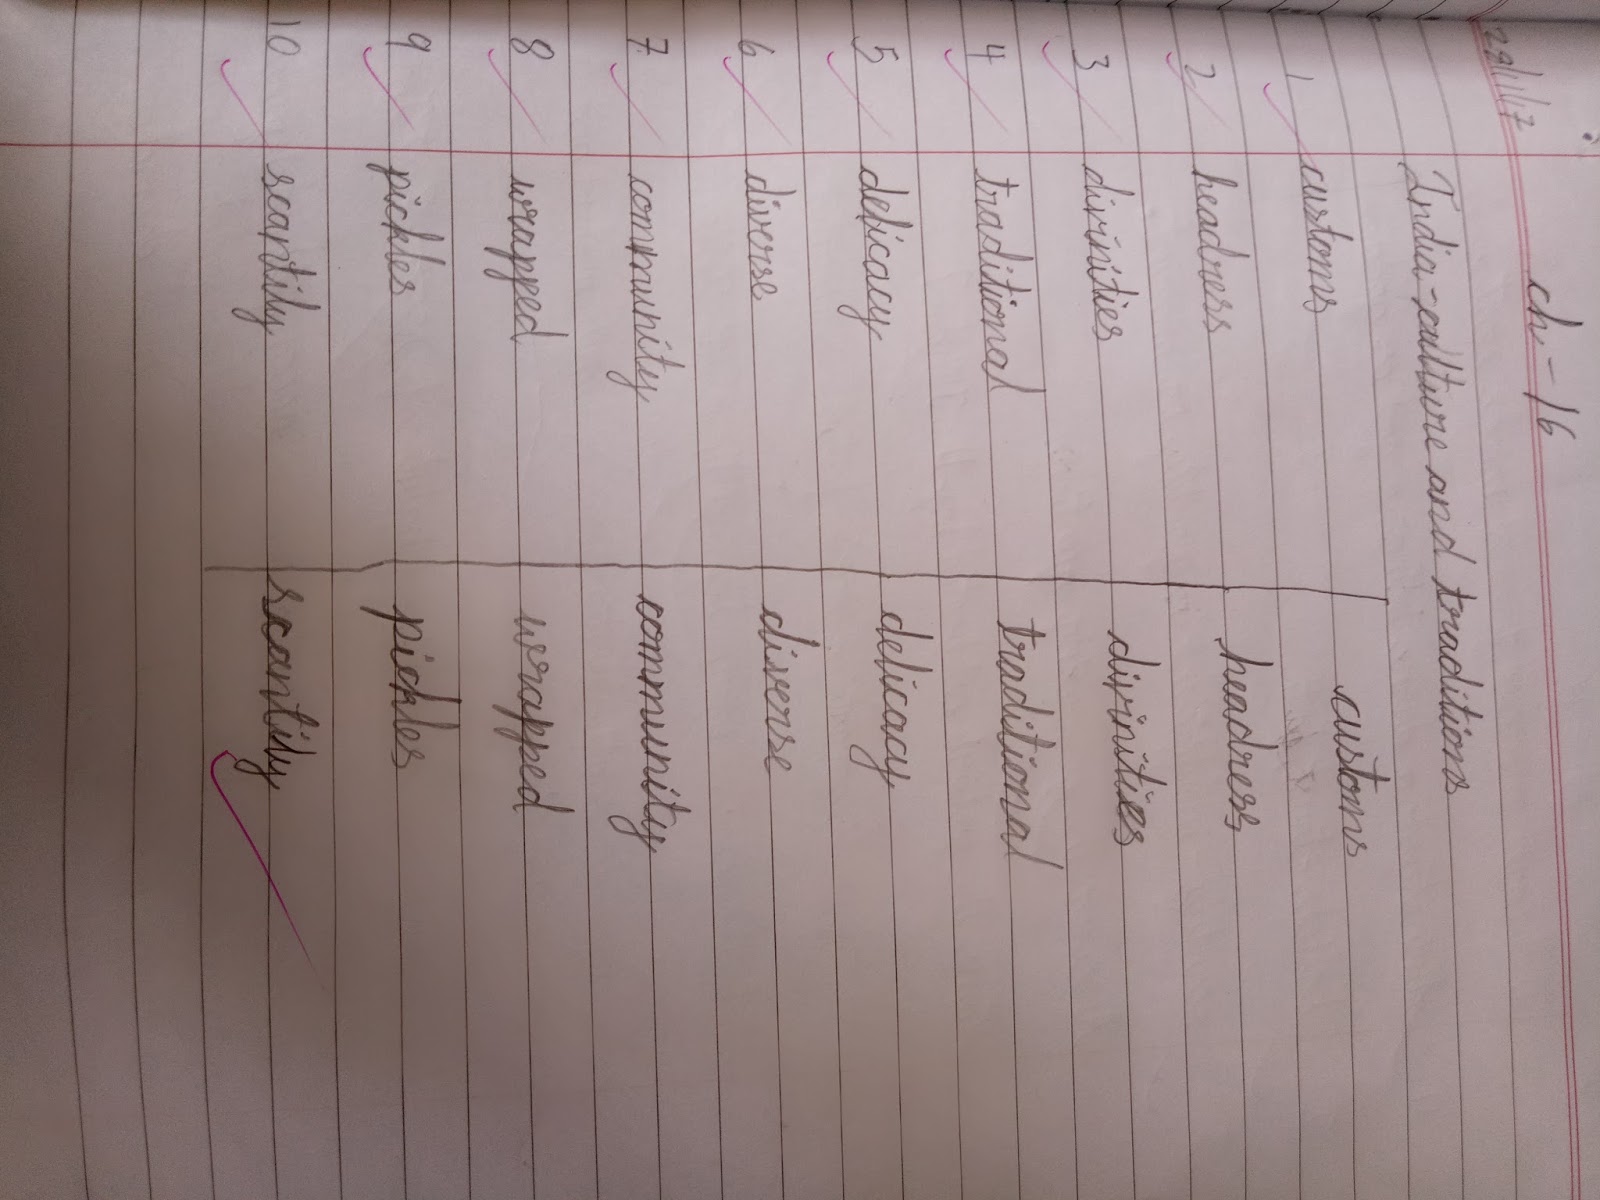 29/11/17 ch-16
India-culture and traditions
1 customs customs
2 headress headress
3 divinities divinities
4 traditional traditional
5 delicacy delicacy
6 diverse diverse
7 community community
8 wrapped wrapped
9 pickles pickles
10 scantily scantily